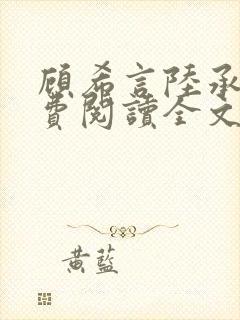 顾希言陸承
費閱讀全文
黃藍